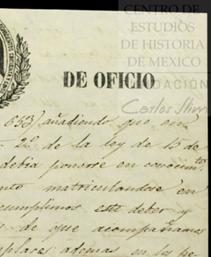 CENTRO DE
ESTUDIOS
DE HISTORIA
DE MEXICO
DE OFICIO
FUNDACIÓN
Carlos Slim
653) añadiendo que en
2º de la ley de 15 de
debia ponerse en conocimto
nto matriculandose en
cumplimos este deber y
de que acompañamos
place ademas en la pe